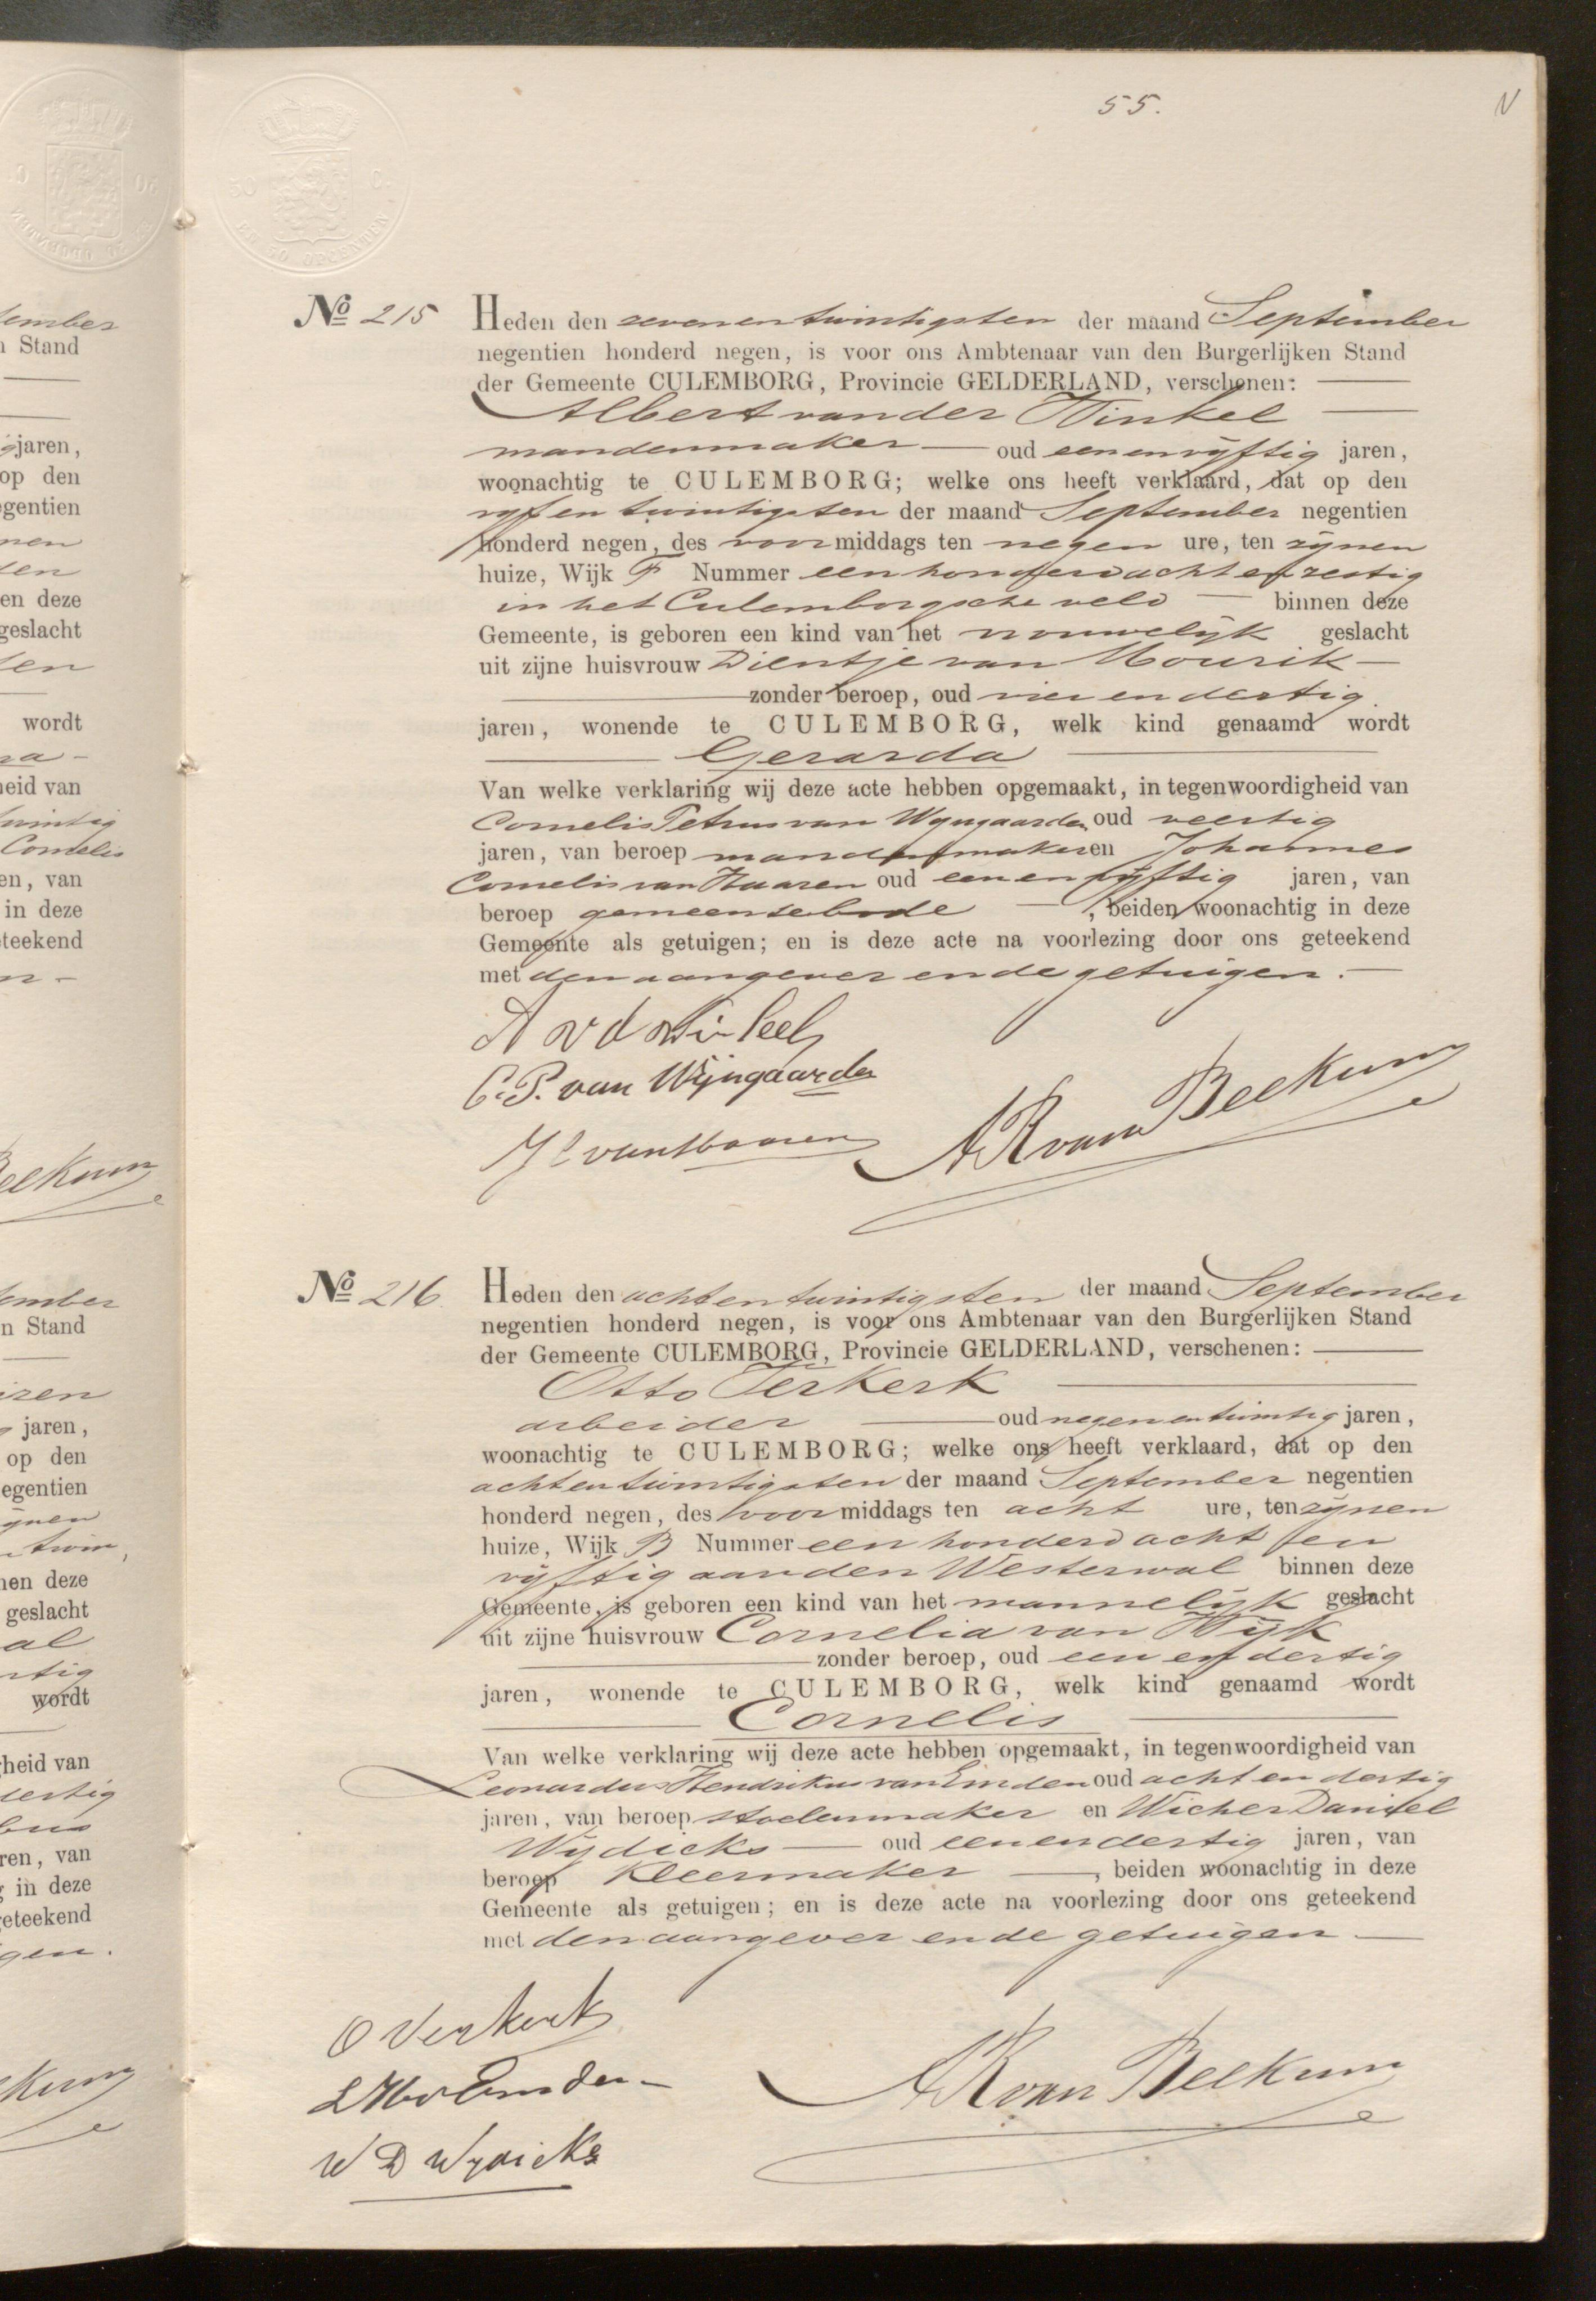 55.
V
50 C.
EN 50 OPCENTEN
No 215 Heden den zevenentwintigsten der maand September
negentien honderd negen, is voor ons Ambtenaar van den Burgerlijken Stand
der Gemeente CULEMBORG, Provincie GELDERLAND, verschenen:
Albert van der Winkel
mandenmaker oud eenenvijftig jaren,
woonachtig te CULEMBORG; welke ons heeft verklaard, dat op den
vijfentwintigsten der maand September negentien
honderd negen, des voormiddags ten negen ure, ten zijnen
huize, Wijk F Nummer eenhonderdachtenzestig
in het Culemborgsche veld binnen deze
Gemeente, is geboren een kind van het vrouwelijk geslacht
uit zijne huisvrouw Dientje van Mourik
zonder beroep, oud vierendertig
jaren, wonende te CULEMBORG, welk kind genaamd wordt
Gerarda
Van welke verklaring wij deze acte hebben opgemaakt, in tegenwoordigheid van
Cornelis Petrus van Wijngaarden oud veertig
jaren, van beroep mandenmaker en Johannes
Cornelis van Haaren oud eenenvijftig jaren, van
beroep gemeentebode, beiden woonachtig in deze
Gemeente als getuigen; en is deze acte na voorlezing door ons geteekend
met den aangever en de getuigen.
A v d Winkel
C. P. van Wijngaarden
J C van Haaren
AR van Beekum
No 216. Heden den achtentwintigsten der maand September
negentien honderd negen, is voor ons Ambtenaar van den Burgerlijken Stand
der Gemeente CULEMBORG, Provincie GELDERLAND, verschenen:
Otto Verkerk
arbeider oud negenentwintig jaren,
woonachtig te CULEMBORG; welke ons heeft verklaard, dat op den
achtentwintigsten der maand September negentien
honderd negen, des voormiddags ten acht ure, ten zijnen
huize, Wijk B Nummer eenhonderdachten
vijftig aan den Westerwal binnen deze
Gemeente, is geboren een kind van het mannelijk geslacht
uit zijne huisvrouw Cornelia van Wijk
zonder beroep, oud eenendertig
jaren, wonende te CULEMBORG, welk kind genaamd wordt
Cornelis
Van welke verklaring wij deze acte hebben opgemaakt, in tegenwoordigheid van
Leonardus Hendrikus van Emden oud achtendertig
jaren, van beroep stoelenmaker en Wicher Daniel
Wydicks oud eenendertig jaren, van
beroep Kleermaker, beiden woonachtig in deze
Gemeente als getuigen; en is deze acte na voorlezing door ons geteekend
met den aangever en de getuigen
O Verkerk
L H v Emden
W D Wydicks
AR van Beekum